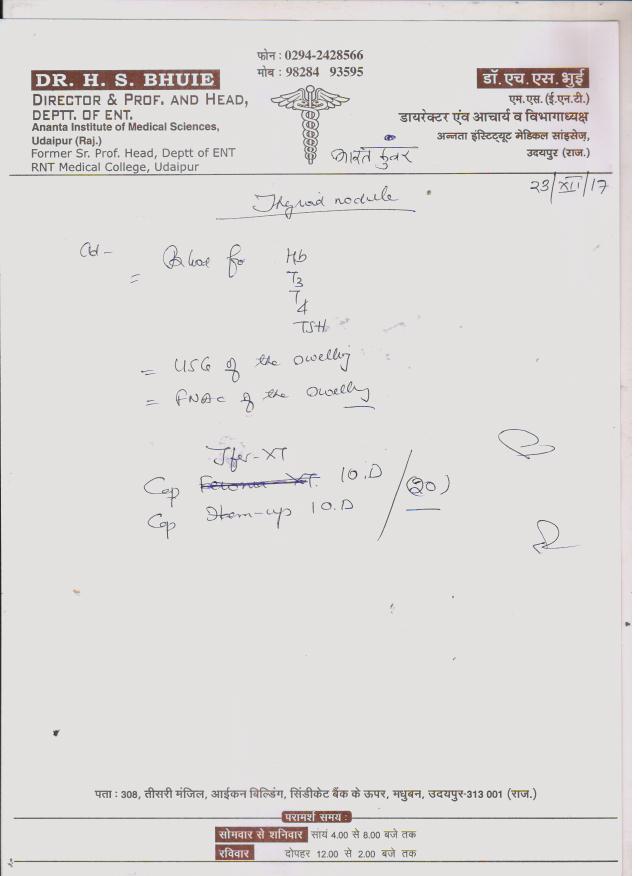 फोन : 0294-2428566
मोब : 98284 93595
DR. H. S. BHUIE
DIRECTOR & PROF. AND HEAD,
DEPTT. OF ENT.
Ananta Institute of Medical Sciences,
Udaipur (Raj.)
Former Sr. Prof. Head, Deptt of ENT
RNT Medical College, Udaipur
डॉ.एच.एस.भुई
एम.एस. (ई.एन.टी.)
डायरेक्टर एंव आचार्य व विभागाध्यक्ष
अनन्ता इंस्टिट्यूट मेडिकल सांइसेज,
उदयपुर (राज.)
कुंवर
23/XII/17
Thyroid nodule
for Hb
T3
T4
TSH
= USG of the swelling
= FNAC of the swelling
Jfer-XT
Cap 10.D
Cap Hem-up 10.D
(20)
पता : 308, तीसरी मंजिल, आईकन बिल्डिंग, सिंडीकेट बैंक के ऊपर, मधुबन, उदयपुर-313 001 (राज.)
परामर्श समय :
सोमवार से शनिवार सायं 4.00 से 8.00 बजे तक
रविवार दोपहर 12.00 से 2.00 बजे तक